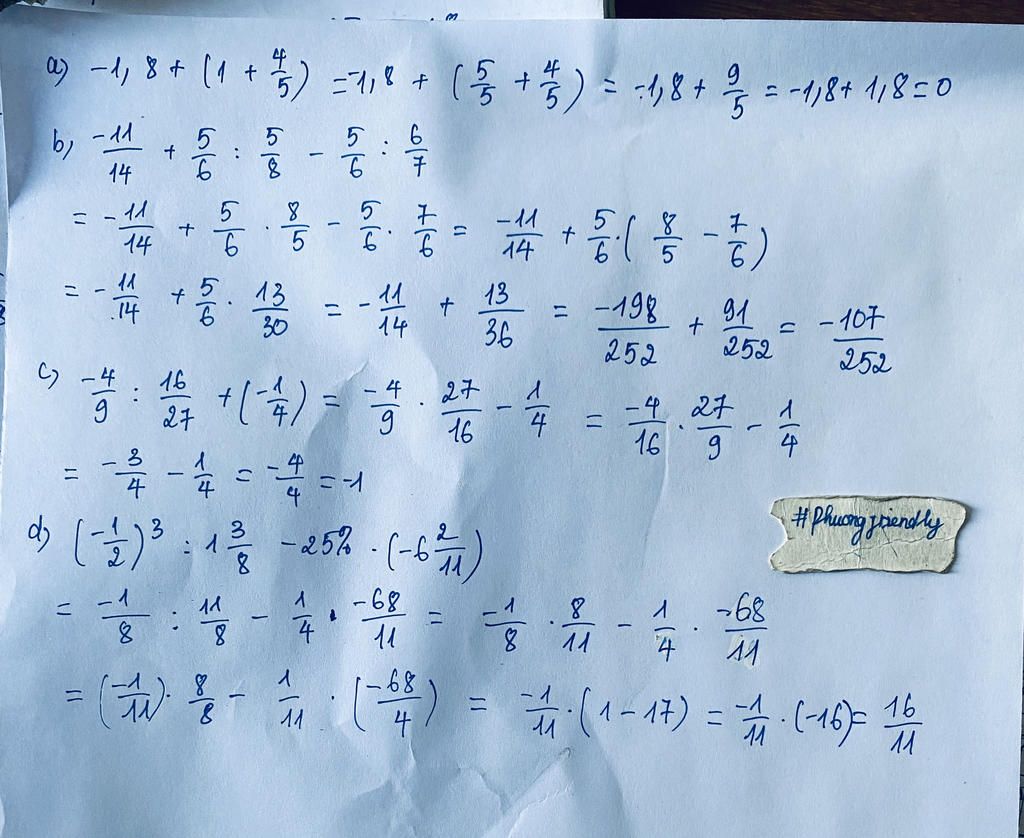 a) -1,8 + (1 + 4/5) = -1,8 + (5/5 + 4/5) = -1,8 + 9/5 = -1,8 + 1,8 = 0
b) -11/14 + 5/6 : 5/8 - 5/6 : 6/7
= -11/14 + 5/6 . 8/5 - 5/6 . 7/6 = -11/14 + 5/6 . (8/5 - 7/6)
= -11/14 + 5/6 . 13/30 = -11/14 + 13/36 = -198/252 + 91/252 = -107/252
c) -4/9 : 16/27 + (-1/4) = -4/9 . 27/16 - 1/4 = -4/16 . 27/9 - 1/4
= -3/4 - 1/4 = -4/4 = -1
d) (-1/2)³ : 1 3/8 - 25% . (-6 2/11)
#Phuongfriendly
= -1/8 : 11/8 - 1/4 . -68/11 = -1/8 . 8/11 - 1/4 . -68/11
= (-1/11) . 8/8 - 1/11 . (-68/4) = -1/11 . (1 - 17) = -1/11 . (-16) = 16/11